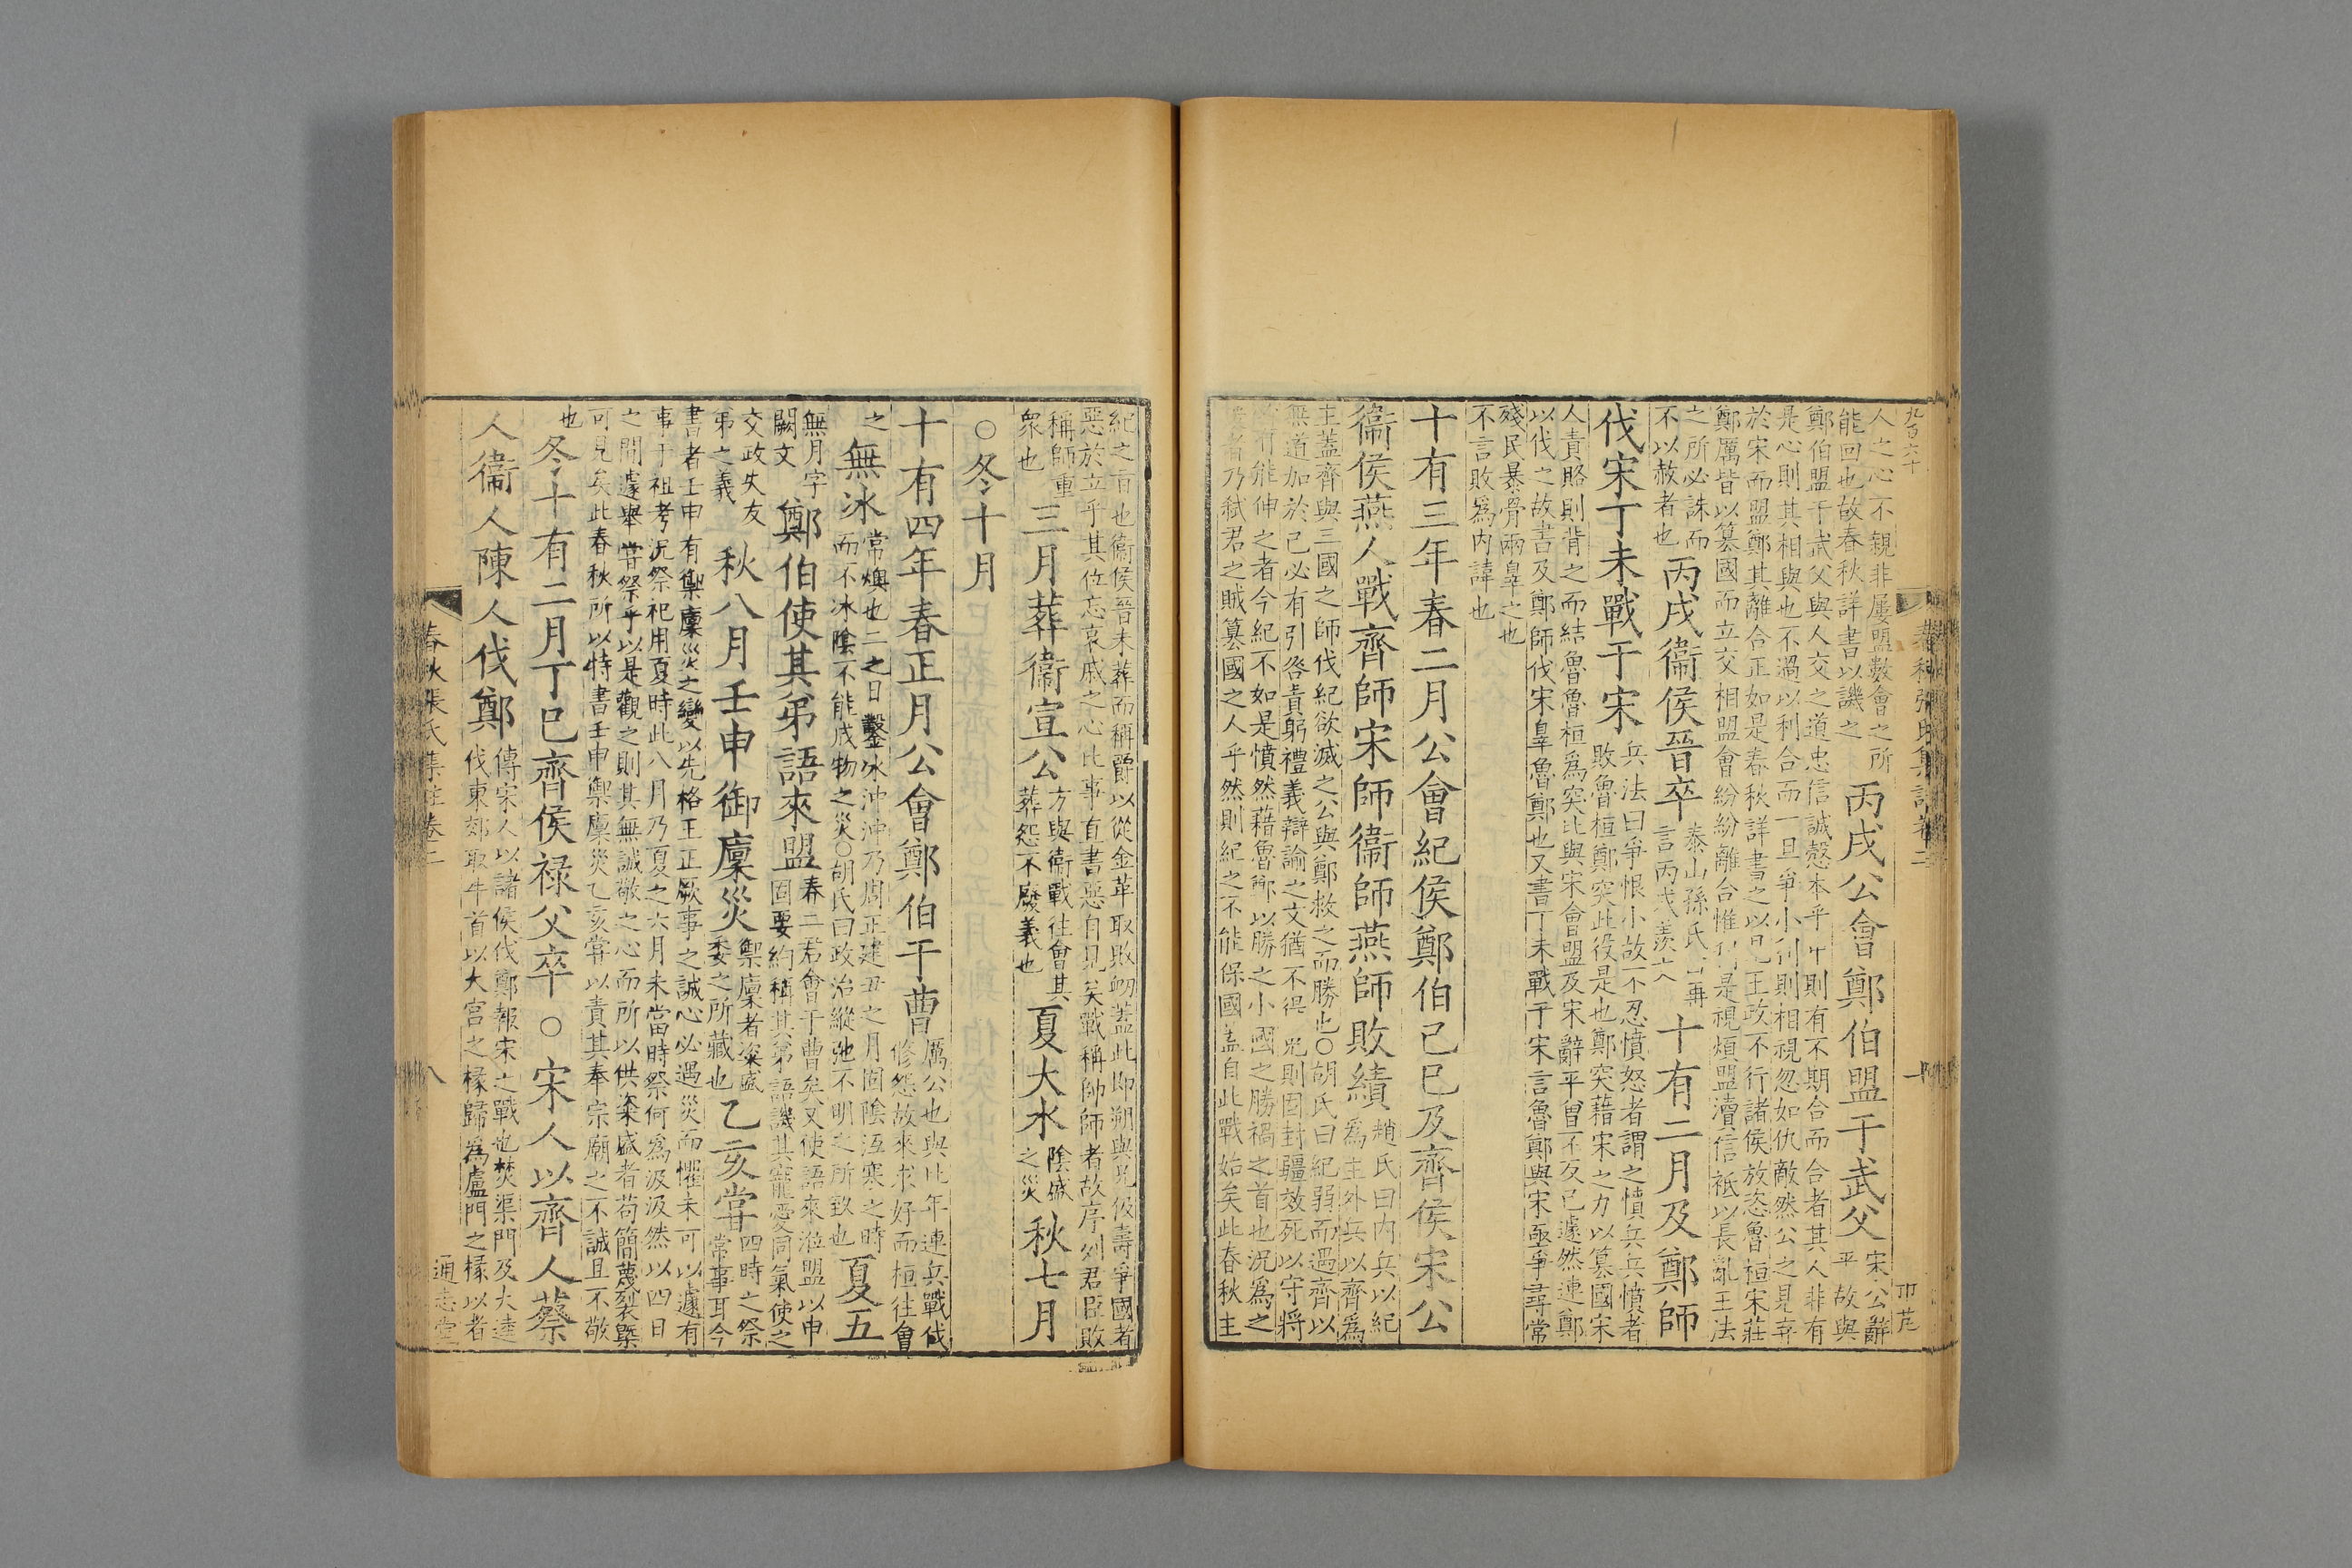 九百六十
人之心不親非屢盟數會之所
能回也故春秋詳書以譏之
丙戌公會鄭伯盟于武父
宋公辭
平故與
鄭伯盟于武父與人交之道忠信誠慤本乎中則有不期合而合者其人非有
是心則其相與也不過以利合而一旦爭小利則相視忽如仇敵然公之見弃
於宋而盟鄭其離合正如是春秋詳書之以見王政不行諸侯放恣魯桓宋莊
鄭厲皆以篡國而立交相盟會紛紛離合惟利是視煩盟瀆信祗以長亂王法
之所必誅而
不以赦者也
丙戌衞侯晉卒
泰山孫氏曰再
言丙戌羨文
十有二月及鄭師
伐宋丁未戰于宋
兵法曰爭恨小故不忍憤怒者謂之憤兵兵憤者
敗魯桓鄭突此役是也鄭突藉宋之力以篡國宋
人責賂則背之而結魯魯桓爲突比與宋會盟及宋辭平曾不反已遽然連鄭
以伐之故書及鄭師伐宋辠魯鄭也又書丁未戰于宋言魯鄭與宋亟爭尋常
殘民暴骨兩辠之也
不言敗爲内諱也
十有三年春二月公會紀侯鄭伯己巳及齊侯宋公
衞侯燕人戰齊師宋師衞師燕師敗績
趙氏曰内兵以紀
爲主外兵以齊爲
主蓋齊與三國之師伐紀欲滅之公與鄭救之而勝也○胡氏曰紀弱而遇齊以
無道加於己必有引咎責躬禮義辯諭之文猶不得免則固封疆效死以守將
有能伸之者今紀不如是憤然藉魯鄭以勝之小國之勝禍之首也況爲之
者乃弒君之賊篡國之人乎然則紀之不能保國蓋自此戰始矣此春秋主
紀之㫖也衞侯晉未葬而稱爵以從金革取敗衂蓋此即朔與兄伋壽爭國者
惡於立乎其位忘哀戚之心比事直書惡自見矣戰稱帥師者故序列君臣敗
稱師重
衆也
三月葬衞宣公
方與衞戰往會其
葬怨不廢義也
夏大水
陰盛
之災
秋七月
○冬十月
十有四年春正月公會鄭伯于曹
厲公也與比年連兵戰伐
修怨故來求好而桓往會
之
無冰
常燠也二之日鑿冰沖沖乃周正建丑之月固陰沍寒之時
而不冰陰不能成物之災○胡氏曰政治縱弛不明之所致也
夏五
無月字
闕文
鄭伯使其弟語來盟
春二君會于曹矣又使語來涖盟以申
固要約稱其弟語譏其寵愛同氣使之
交政失友
弟之義
秋八月壬申御廩災
禦廩者粢盛
委之所藏也
乙亥嘗
四時之祭
常事耳今
書者壬申有禦廩災之變以先格王正厥事之誠心必遇災而懼未可以遽有
事于祖考況祭祀用夏時此八月乃夏之六月未當時祭何爲汲汲然以四日
之間遽舉嘗祭乎以是觀之則其無誠敬之心而所以供粢盛者苟簡蔑裂槩
可見矣此春秋所以特書壬申禦廩災乙亥嘗以責其奉宗廟之不誠且不敬
也
冬十有二月丁巳齊侯禄父卒
○宋人以齊人蔡
人衞人陳人伐鄭
傳宋人以諸侯伐鄭報宋之戰也焚渠門及大逵
伐東郊取牛首以大宫之椽歸爲盧門之椽以者
春秋張氏集註卷二
八
通志堂